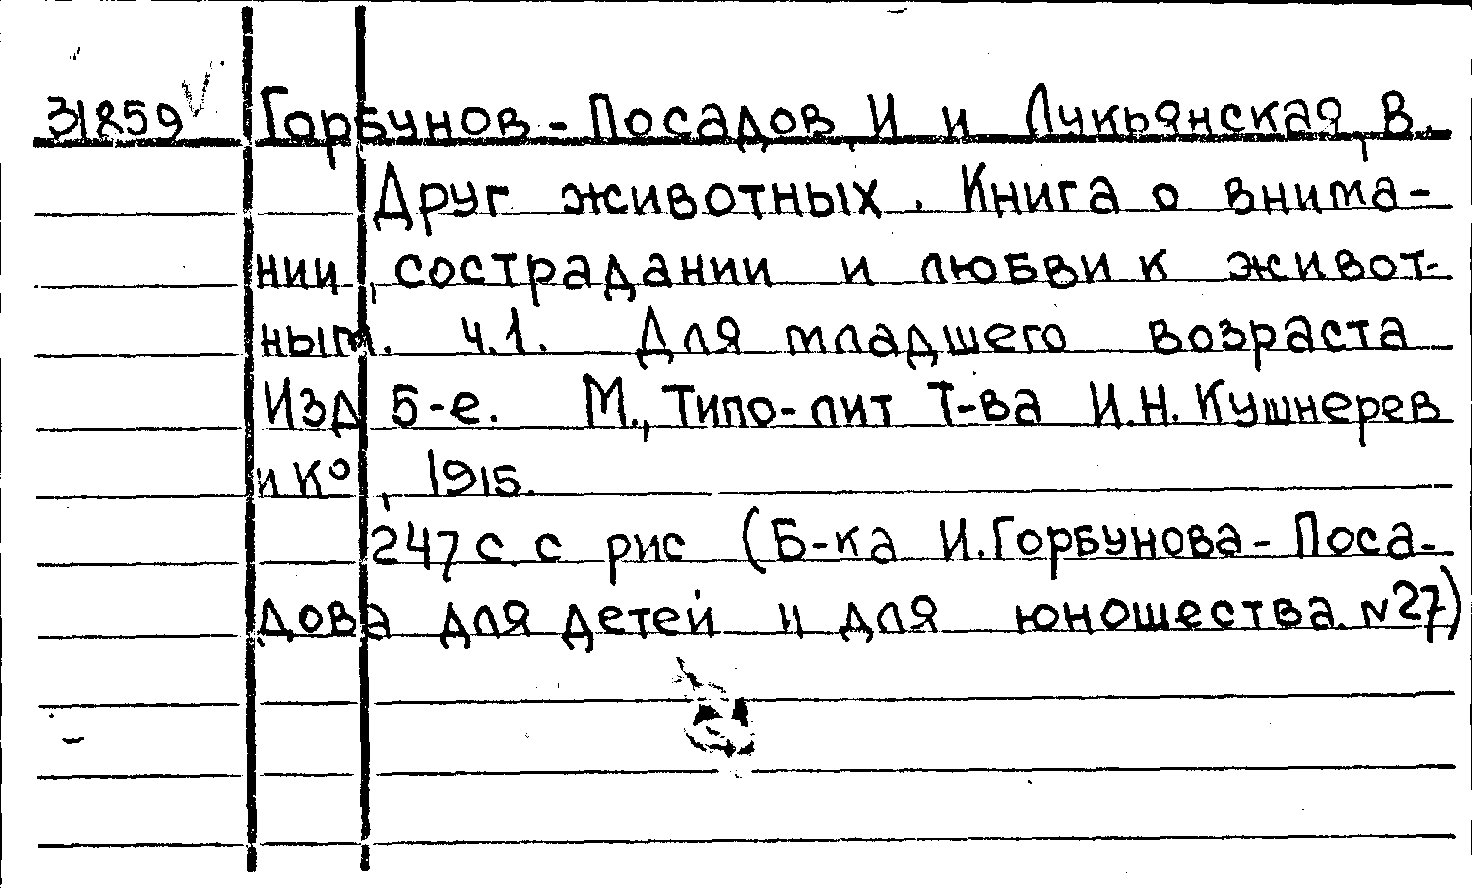 31859 Горбунов-Посадов И и Лукьянская В.
Друг животных. Книга о внима-
нии, сострадании и любви к живот-
ным. ч.1. Для младшего возраста
Изд 5-е. М., Типо-лит Т-ва И.Н. Кушнерев
и К°, 1915.
247 с с рис (Б-ка И.Горбунова-Поса-
дова для детей и для юношества. N27)